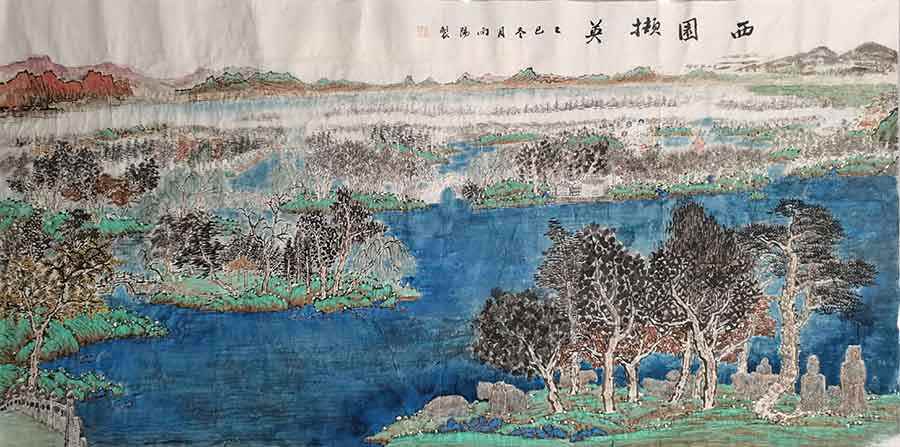 西園擷英
乙巳冬月向陽製